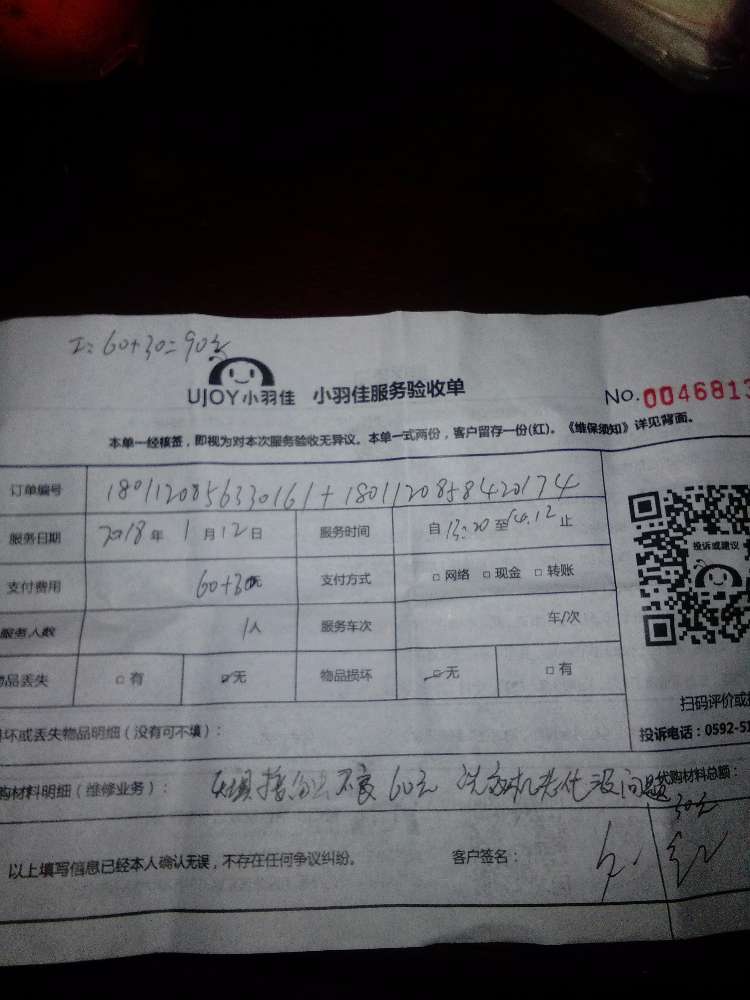 60+30=90元
UJOY小羽佳 小羽佳服务验收单
No.0046813
本单一经核签，即视为对本次服务验收无异议。本单一式两份，客户留存一份(红)。《维保须知》详见背面。
订单编号 1801120856330161+1801120858420174
服务日期 2018年1月12日 服务时间 自13:20至14:12止
投诉或建议
支付费用 60+30元 支付方式 □网络 □现金 □转账
服务人数 1人 服务车次 车/次
物品丢失 □有 ☑无 物品损坏 ☑无 □有
扫码评价或
坏或丢失物品明细（没有可不填）：
投诉电话：0592-51
购材料明细（维修业务）： 不良60元 没问题 代购材料总额：
30元
以上填写信息已经本人确认无误，不存在任何争议纠纷。 客户签名：